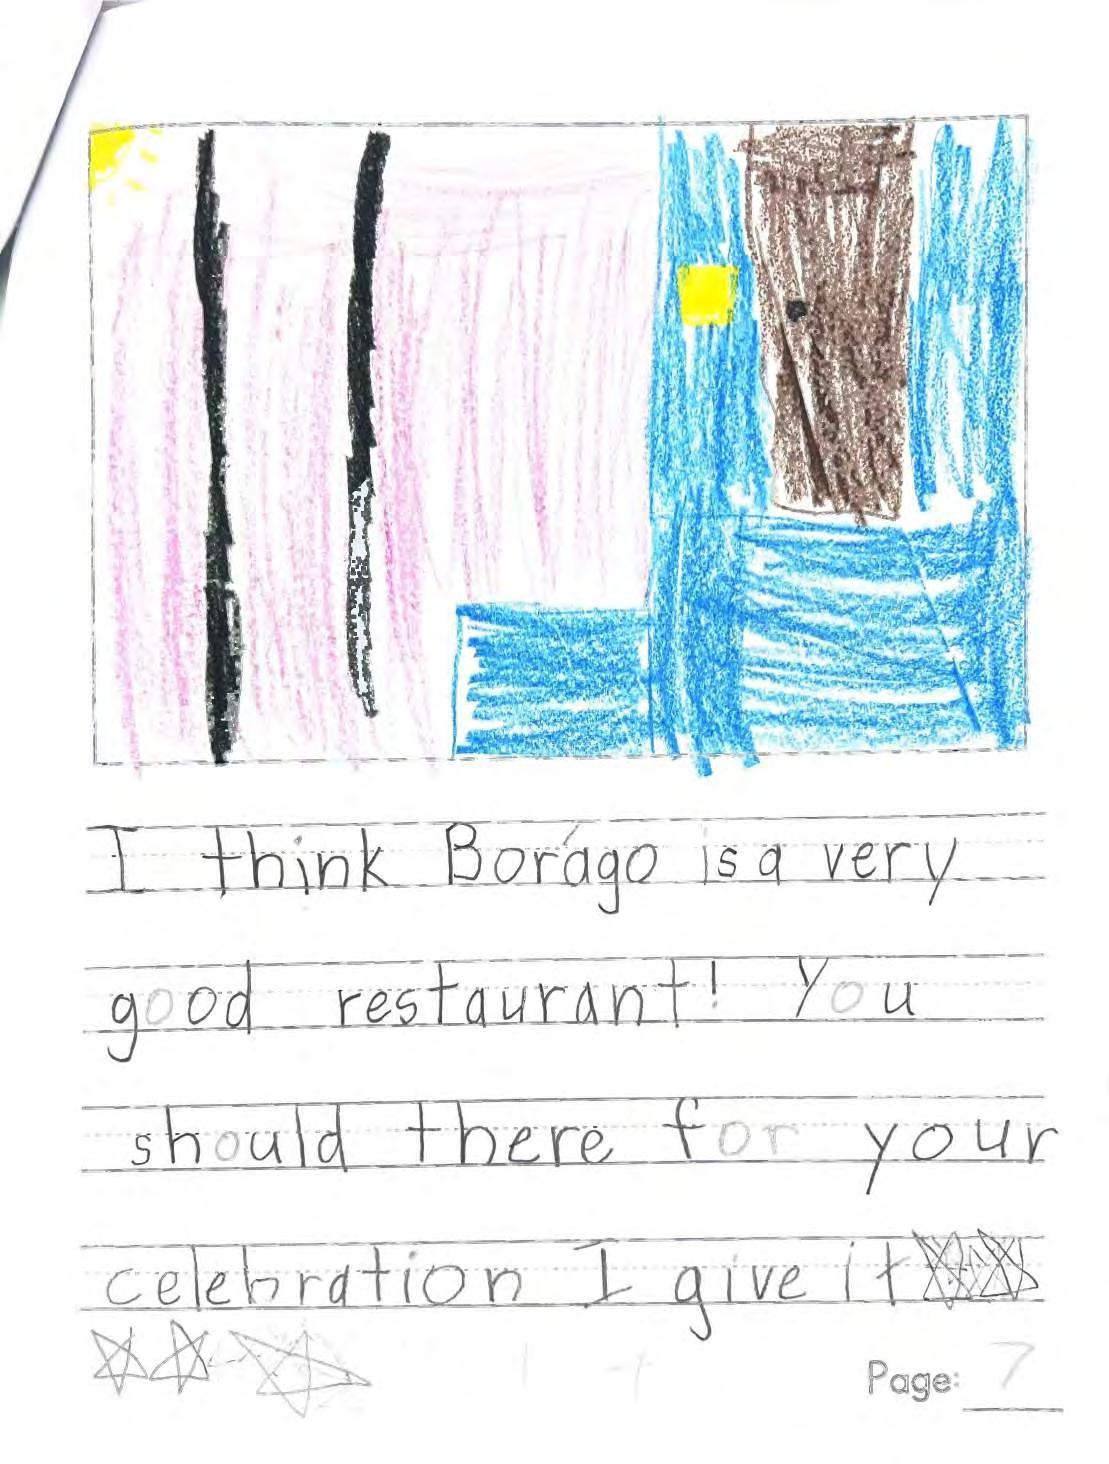 I think Borágo is a very
good restaurant! You
should there for your
celebration I give it
Page: 7